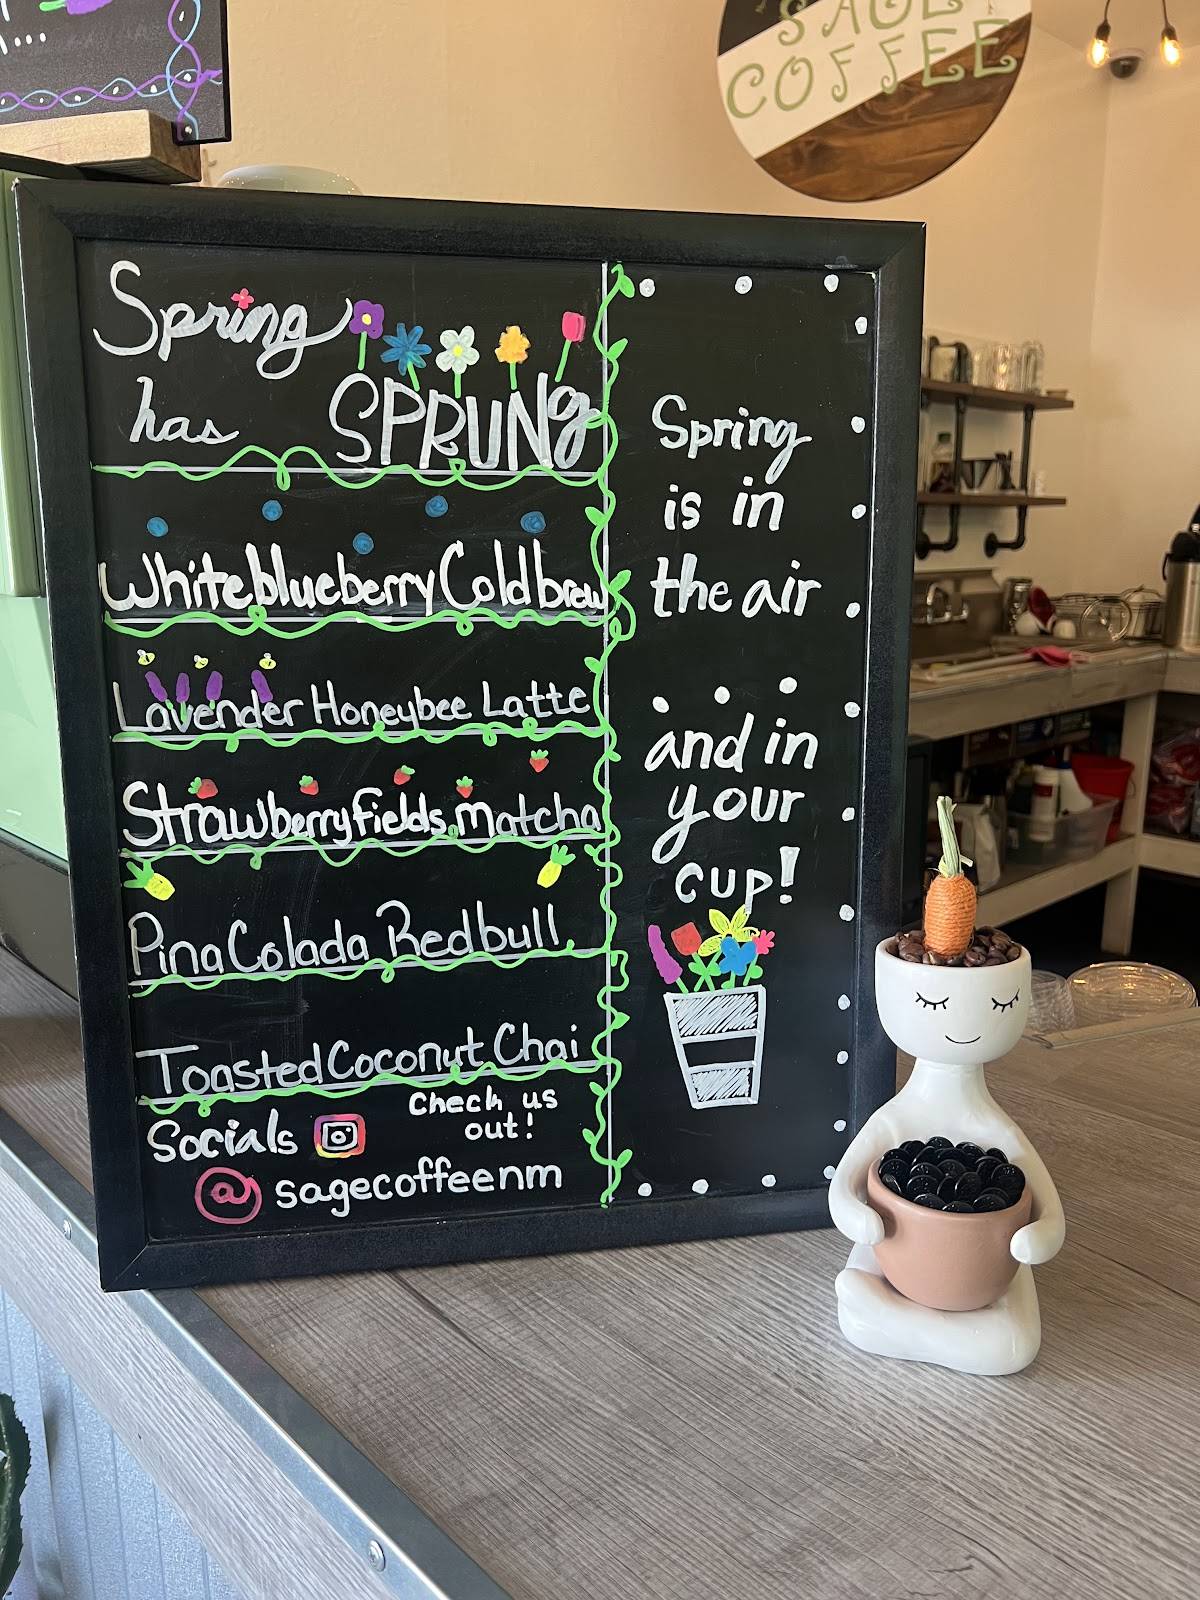 SAGE
COFFEE
Spring
has SPRUNg
White blueberry Cold brew
Lavender Honeybee Latte
Strawberry fields matcha
Pina Colada Redbull
Toasted Coconut Chai
Socials
Check us
out!
@sagecoffeenm
Spring
is in
the air
...
and in
your
cup!